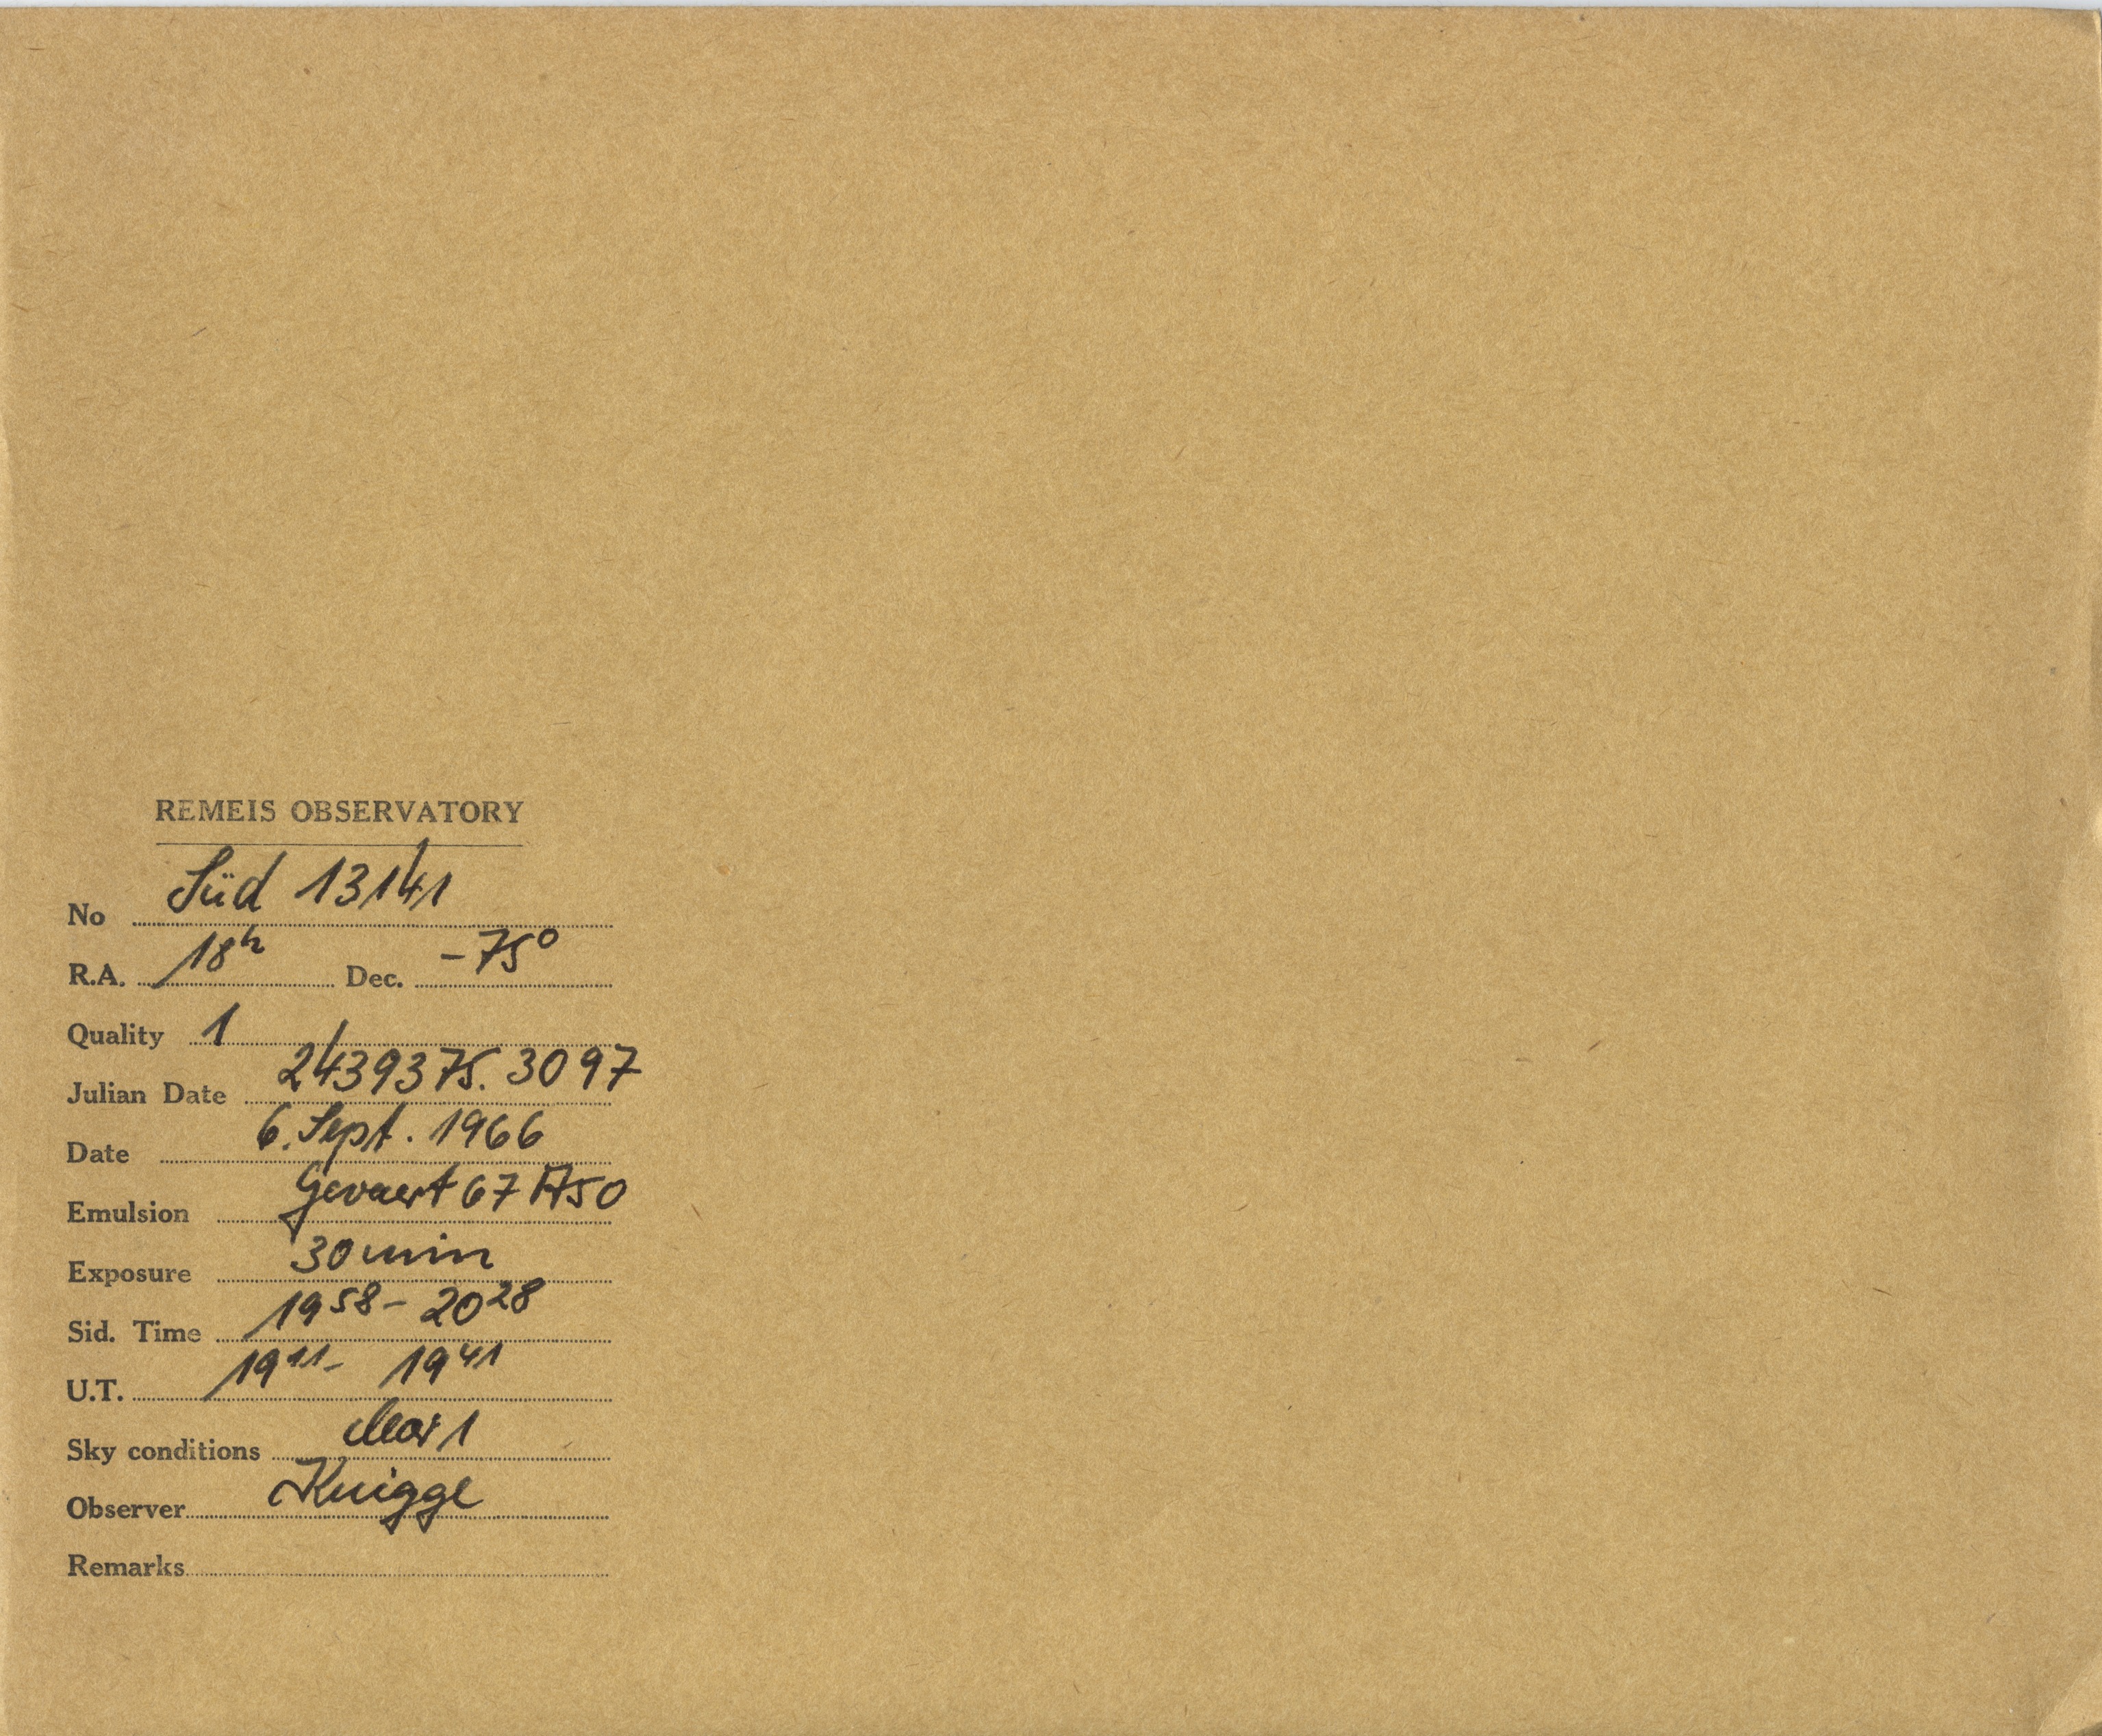 REMEIS OBSERVATORY
No Süd 13141
R.A. 18h Dec. -75°
Quality 1
Julian Date 2439375.3097
Date 6. Sept. 1966
Emulsion Gevaert 67 A50
Exposure 30 min
Sid. Time 19 58 - 20 28
U.T. 19 11 - 19 41
Sky conditions clear 1
Observer Knigge
Remarks